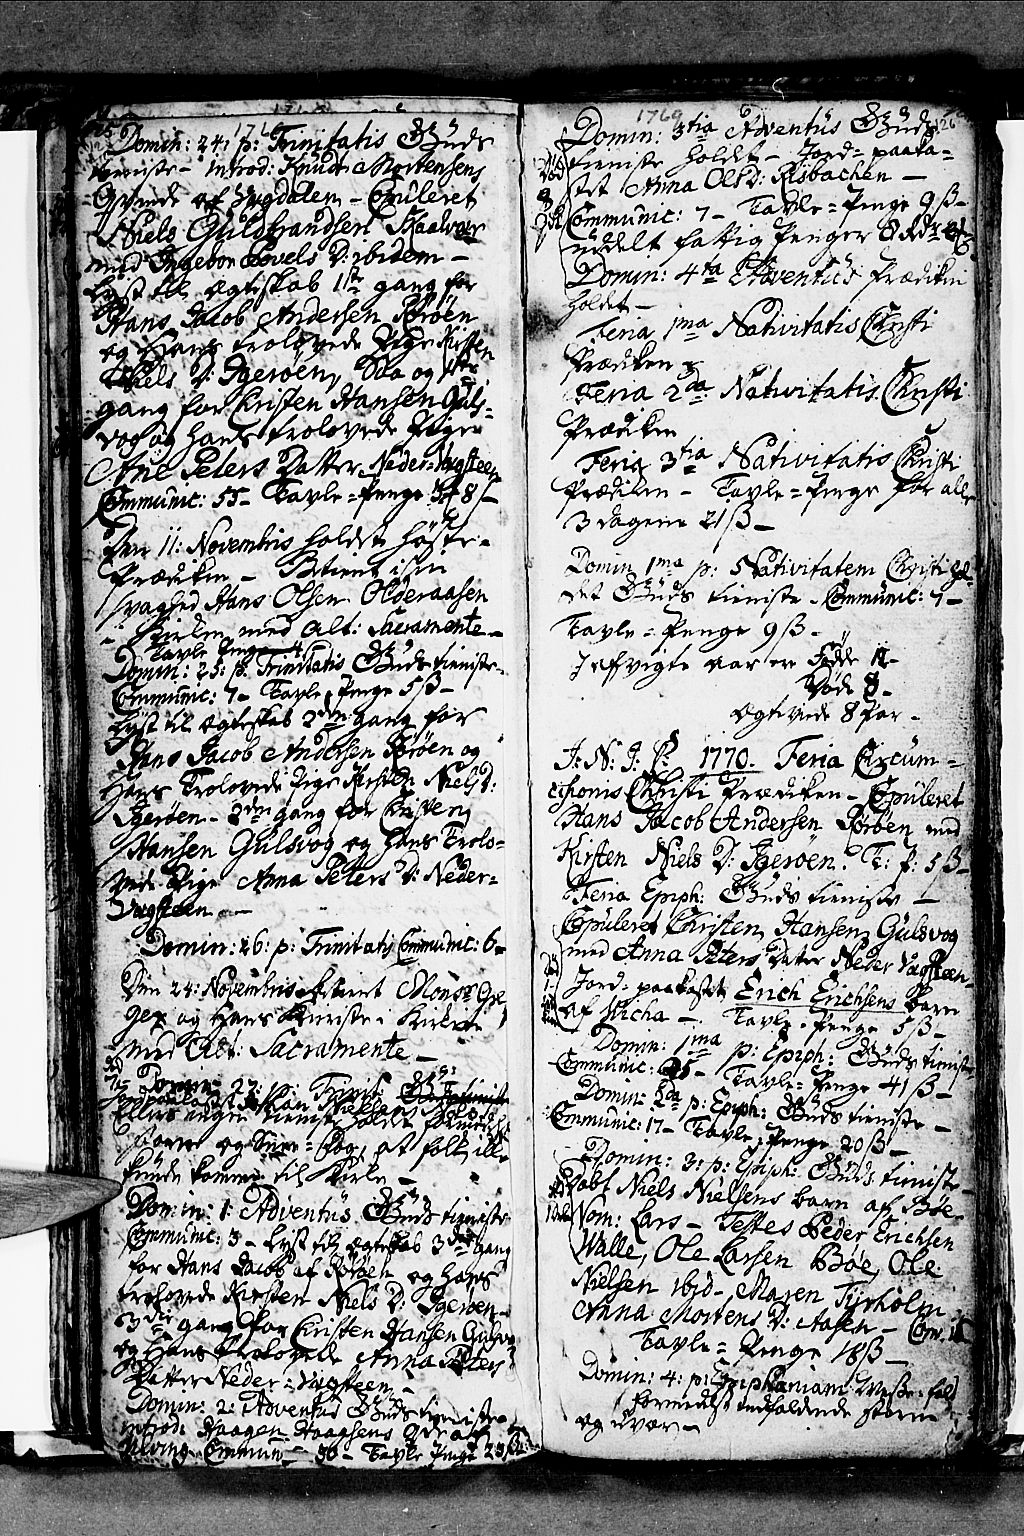 1769
Domin: 24: p: Trinitatis Guds
tieniste - Introd: Knud Mortensens
Qvinde af Mygdalen - Copuleret
Niels Guldbrandsen Skaalvær
med Ingebor Povels D: ibidem -
Lyst til Ægteskab 1ste gang for
Hans Jacob Andersen Sørøen
og Hans trolovede Pige Kirsten
Niels D: Igerøen, Saa og 1ste
gang for Christen Hansen Guls-
vog og hans trolovede Pige
Ane Peters Datter Neder-Vagsteen
Communic: 55 - Tavle-Penge
Den 11: Novembris holdt Høste-
Prædiken - Betient i sin
svaghed Hans Olsen Olderaasen
- Kirken med Alt: Sacramente -
Tavle Penge
Domin: 25: p: Trinitatis Guds tieniste -
Communic: 7 - Tavle-Penge 5 β -
Lyst til Ægteskab 2den gang for
Hans Jacob Andersen Sørøen og
Hans Trolovede Pige Kirsten Niels D:
Igerøen - 2den gang for Christen
Hansen Gulsvog og Hans Trolo-
vede Pige Anna Peters D: Neder-
Vagsteen -
Domin: 26: p: Trinitatis Communic: 6 -
Den 24: Novembris betient Monsr
og Hans Kieriste i Kirken
med Alt: Sacramente -
Domin: 27: p: Trinit:
Ellers ingen tieniste holdt formedelst
Storm og Snee-Fog, at folk ikke
kunde komme til Kirke -
Domin: 1: Adventus Guds tieniste
Communic: 3 - Lyst til Ægteskab 3die gang
for Hans Jacob af Sørøen og Hans
trolovede Kirsten Niels D: Igerøen -
3die gang for Christen Hansen Gulsvog
og Hans Trolovede Anna Peters
Datter Neder-Vagsteen -
Domin: 2: Adventus Guds tieniste
Introd: Haagen Haagsens Qvinde af
Communic: 30 - Tavle Penge
1769
126
Domin: 3tia Adventus Guds
tieniste holdt - Jord-paaka-
stet Anna Ols D: Risbachen -
Communic: 7 - Tavle-Penge 9 β -
uddelt fattig Penger
Domin: 4ta Adventus Prædiken
holdet -
Feria 1ma Nativitatis Christi
Prædiken
Feria 2da Nativitatis Christi
Prædiken
Feria 3tia Nativitatis Christi
Prædiken - Tavle-Penge for alle
3 dagene 21 β -
Domin 1ma p: Nativitatem Christi hol-
det Guds tieniste - Communic: 7 -
Tavle-Penge 9 β -
I afvigte aar ere Fødde 11 -
Døde 8 -
Ægteviede 8 Par -
J: N: J: C: 1770. Feria Circum-
cisionis Christi Prædiken - Copuleret
Hans Jacob Andersen Sørøen med
Kirsten Niels D: Igerøen. T: P: 5 β -
Feria Epiph: Guds tieniste -
Copuleret Christen Hansen Gulsvog
med Anna Peters Datter Neder Vagsteen -
Jord-paakastet Erich Erichsens barn
af Micha - Tavle-Penge 5 β -
Domin: 1ma p: Epiph: Guds tieniste
Communic: 25 - Tavle-Penge 41 β -
Domin: 2da p: Epiph: Guds tieniste -
Communic: 17 - Tavle-Penge 20 β -
Domin: 3: p: Epiph: Guds tieniste -
Døbt Niels Nielsens barn af Bøe
Nom: Lars - Testes Peder Erichsen
Walle, Ole Larsen Bøe, Ole
Nielsen ibid - Maren Tiørholm
Anna Mortens D: Aasen - Com:
Tavle-Penge 18 β -
Domin: 4: p: Epiphaniam Messe-fald
formedelst indfaldende storm
og uvær -